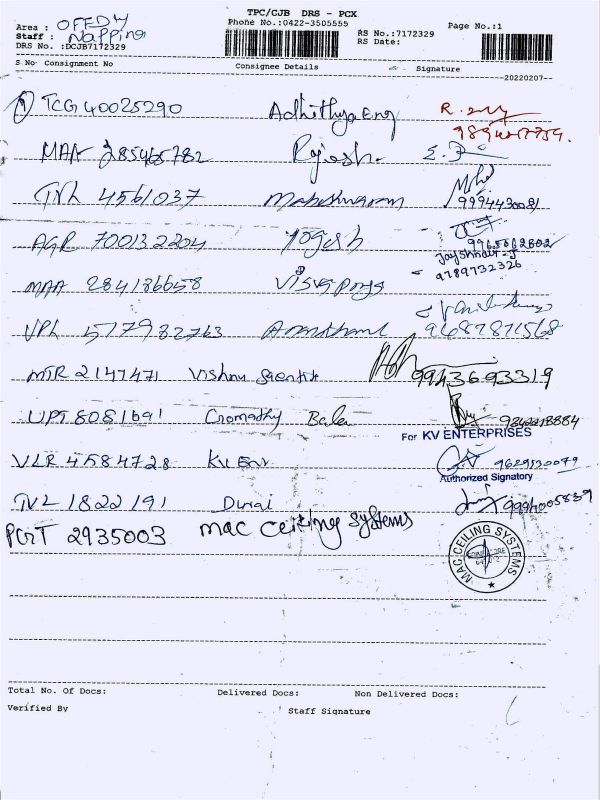 TPC/CJB DRS - PCX
Area : OFFDY Phone No.:0422-3505555 Page No.:1
Staff : Napping RS No.:7172329
DRS No. :DCJB7172329 RS Date:
S.No Consignment No Consignee Details Signature
20220207
1 TCG 40025290 Adhithya Eng
MAA 285465782 Rajesh
TVL 4561037 Maheshwaran 9994430081
AGR 700132204 Yogesh 9965662802
Jayshhaur-J
9789732326
MAA 284186658 Visvapriya
VPL 517982763 9687871568
MTR 2147471 Vishnu Scientific 9943693319
UPT 8081691 Gomathy Bala 9242218884
For KV ENTERPRISES
VLR 4584728 KV Ent 9629520079
Authorized Signatory
TVL 1822191 Durai 9994005839
PGT 2935003 Mac Ceiling Systems
MAC CEILING SYSTEMS
Total No. Of Docs: Delivered Docs: Non Delivered Docs:
Verified By Staff Signature